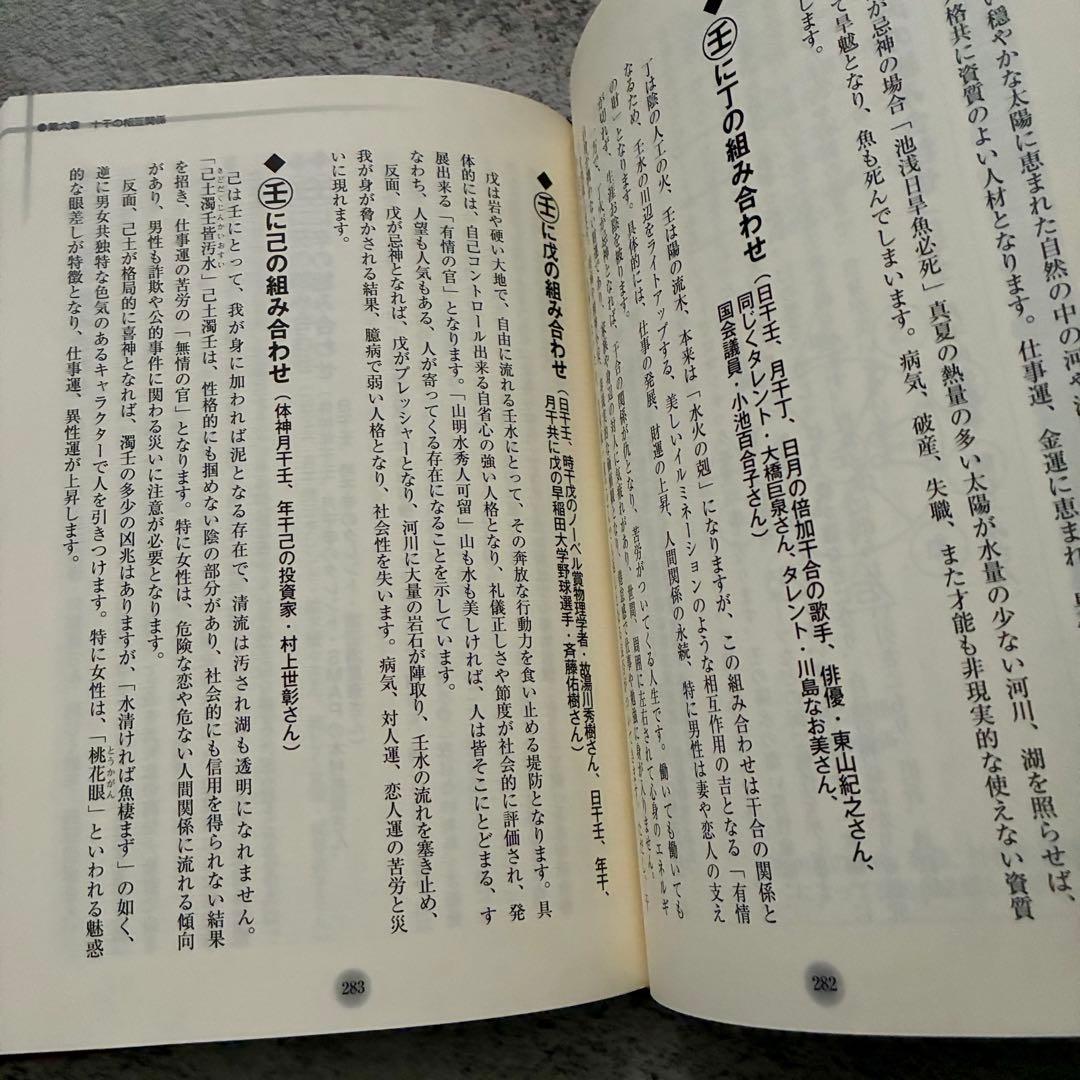 い穏やかな太陽に恵まれた自然の中の河や
湖を照らせば、
格共に資質のよい人材となります。仕事運、金運に恵まれ
が忌神の場合「池浅日旱魚必死」真夏の熱量の多い太陽が水量の少ない河川、
て旱魃となり、魚も死んでしまいます。病気、破産、失職、また才能も非現実的な使えない資質
す。
◆壬に丁の組み合わせ(日干壬、月干丁、日月の倍加干合の歌手、俳優・東山紀之さん、
同じくタレント・大橋巨泉さん、タレント・川島なお美さん、
国会議員・小池百合子さん)
丁は陰の人工の火、壬は陽の流水、本来は「水火の剋」になりますが、この組み合わせは干合の関係と
なるため、壬水の川辺をライトアップする、美しいイルミネーションのような相互作用の吉となる「有情
の財」となります。具体的には、仕事の発展、財運の上昇、人間関係の永続、特に男性は妻や恋人の支え
283
282
●第六章 十干の相互関係
◆壬に戊の組み合わせ(日干壬、時干戊のノーベル賞物理学者・故湯川秀樹さん、日干壬、年干、
月干共に戊の早稲田大学野球選手・斉藤佑樹さん)
戊は岩や硬い大地で、自由に流れる壬水にとって、その奔放な行動力を食い止める堤防となります。具
体的には、自己コントロール出来る自省心の強い人格となり、礼儀正しさや節度が社会的に評価され、発
展出来る「有情の官」となります。「山明水秀人可留」山も水も美しければ、人は皆そこにとどまる、す
なわち、人望も人気もある、人が寄ってくる存在になることを示しています。
反面、戊が忌神となれば、戊がプレッシャーとなり、河川に大量の岩石が陣取り、壬水の流れを塞き止め、
我が身が脅かされる結果、臆病で弱い人格となり、社会性を失います。病気、対人運、恋人運の苦労と災
いに現れます。
◆壬に己の組み合わせ(体神月干壬、年干己の投資家・村上世彰さん)
己は壬にとって、我が身に加われば泥となる存在で、清流は汚され湖も透明になれません。
「己土濁壬皆汚水」己土濁壬は、性格的にも掴めない陰の部分があり、社会的にも信用を得られない結果
を招き、仕事運の苦労の「無情の官」となります。特に女性は、危険な恋や危ない人間関係に流れる傾向
があり、男性も詐欺や公的事件に関わる災いに注意が必要となります。
反面、己土が格局的に喜神となれば、濁壬の多少の凶兆はありますが、「水清ければ魚棲まず」の如く、
逆に男女共独特な色気のあるキャラクターで人を引きつけます。特に女性は、「桃花眼」といわれる魅惑
的な眼差しが特徴となり、仕事運、異性運が上昇します。